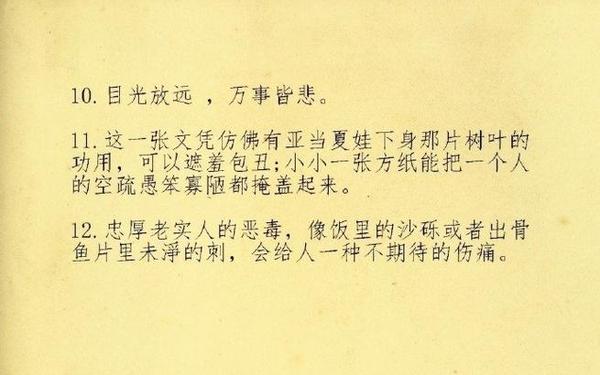 10. 目光放远 ，万事皆悲。
11. 这一张文凭仿佛有亚当夏娃下身那片树叶的
功用，可以遮羞包丑;小小一张方纸能把一个人
的空疏愚笨寡陋都掩盖起来。
12. 忠厚老实人的恶毒，像饭里的沙砾或者出骨
鱼片里未淨的刺，会给人一种不期待的伤痛。